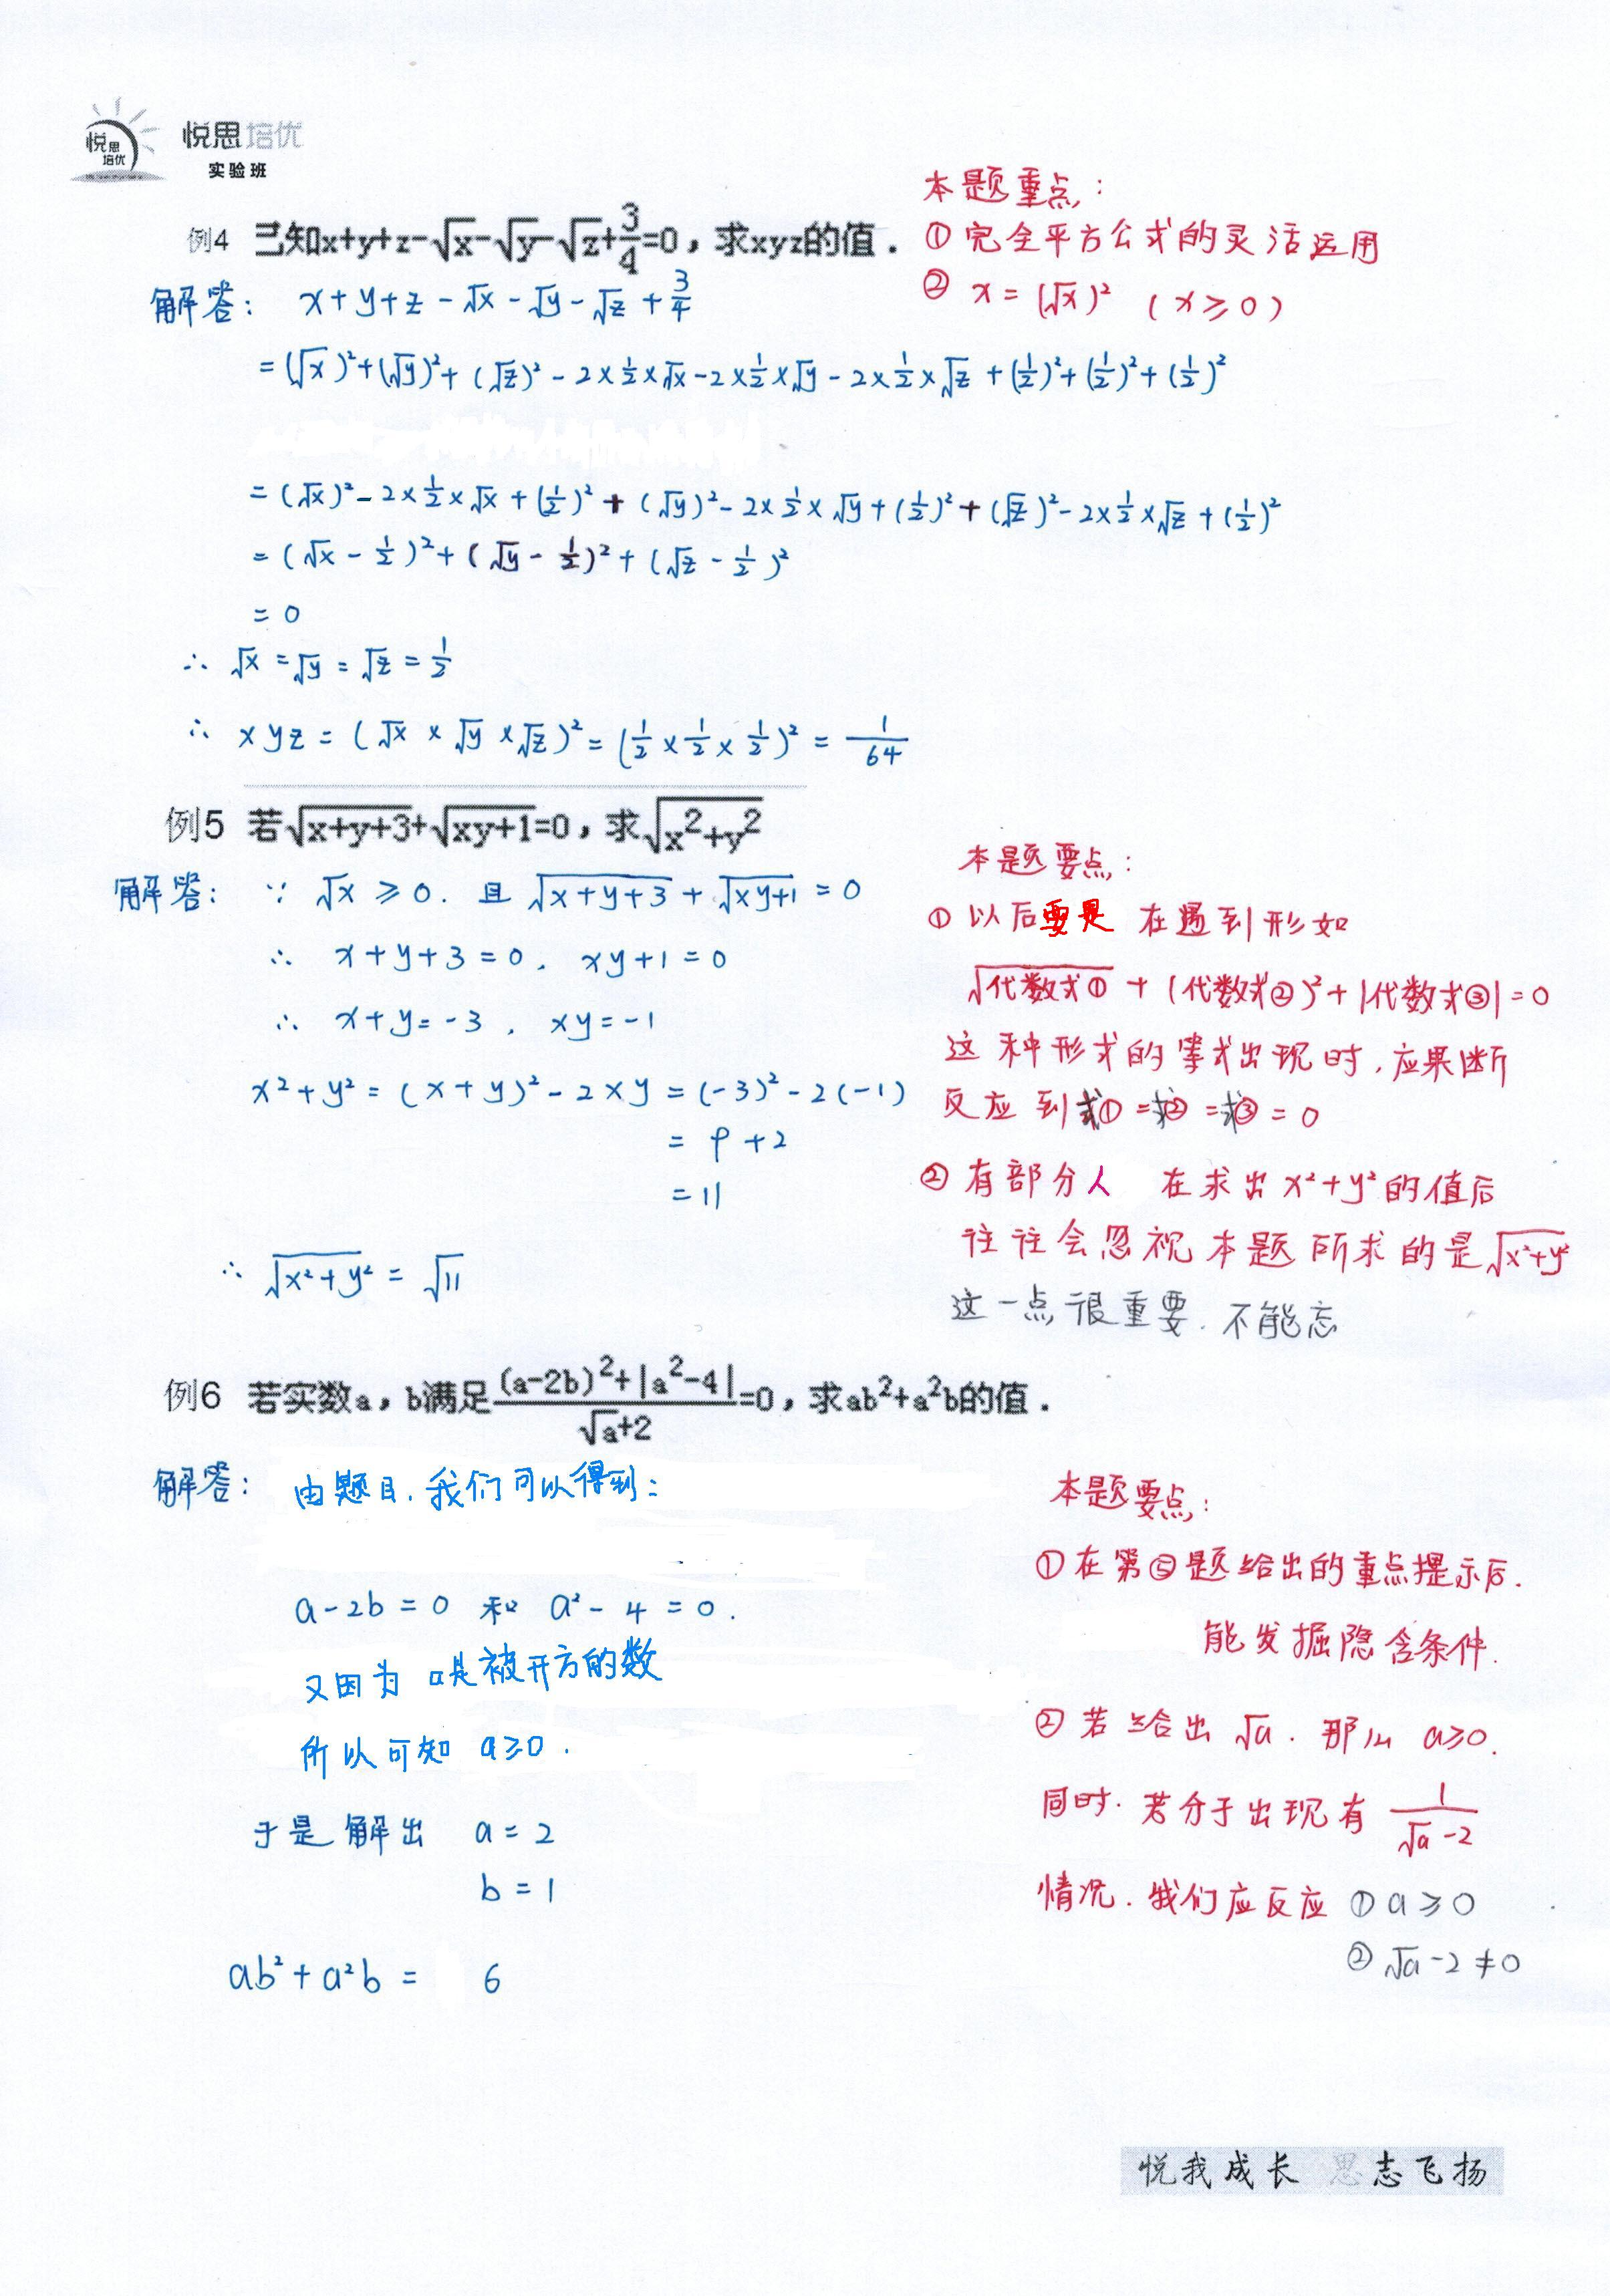 悦思
培优
悦思培优
实验班
本题重点:
例4 已知x+y+z-√x-√y-√z+3/4=0，求xyz的值．
①完全平方公式的灵活运用
② x=(√x)² (x≥0)
解答: x+y+z-√x-√y-√z+3/4
=(√x)²+(√y)²+(√z)²-2×1/2×√x-2×1/2×√y-2×1/2×√z+(1/2)²+(1/2)²+(1/2)²
=(√x)²-2×1/2×√x+(1/2)²+(√y)²-2×1/2×√y+(1/2)²+(√z)²-2×1/2×√z+(1/2)²
=(√x-1/2)²+(√y-1/2)²+(√z-1/2)²
=0
∴ √x=√y=√z=1/2
∴ xyz=(√x×√y×√z)²=(1/2×1/2×1/2)²=1/64
例5 若√(x+y+3)+√(xy+1)=0，求√(x²+y²)
解答: ∵ √x≥0. 且 √(x+y+3)+√(xy+1)=0
∴ x+y+3=0, xy+1=0
∴ x+y=-3, xy=-1
x²+y²=(x+y)²-2xy=(-3)²-2(-1)
=9+2
=11
∴ √(x²+y²)=√11
本题要点:
①以后要是 在遇到形如
√(代数式①)+(代数式②)²+|代数式③|=0
这种形式的等式出现时,应果断
反应到式①=式②=式③=0
②有部分人 在求出x²+y²的值后
往往会忽视本题所求的是√(x²+y²)
这一点很重要.不能忘
例6 若实数a，b满足((a-2b)²+|a²-4|)/(√a+2)=0，求ab²+a²b的值．
解答: 由题目,我们可以得到:
a-2b=0 和 a²-4=0.
又因为 a是被开方的数
所以可知 a≥0.
于是解出 a=2
b=1
ab²+a²b= 6
本题要点:
①在第⑤题给出的重点提示后.
能发掘隐含条件.
②若给出√a.那么 a≥0.
同时.若分子出现有 1/(√a-2)
情况.我们应反应 ①a≥0
②√a-2≠0
悦我成长 思志飞扬